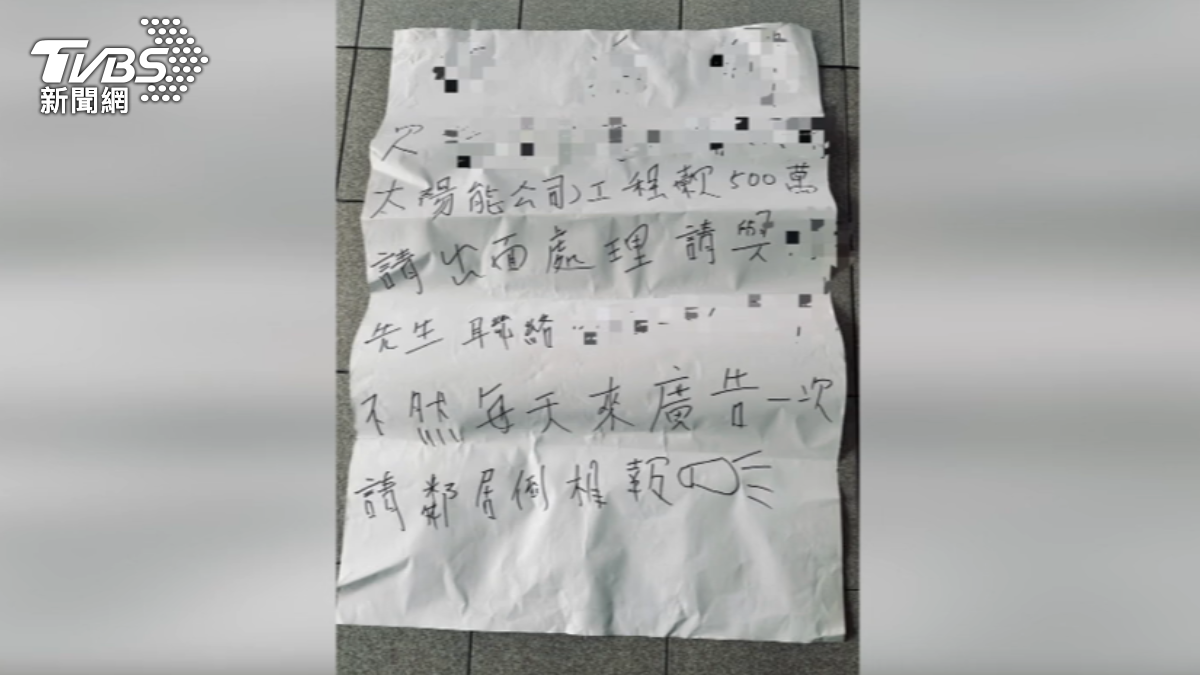 TVBS
新聞網
欠
太陽能公司)工程款500萬
請出面處理 請與
先生 聯絡
不然每天來廣告一次
請鄰居倒相報